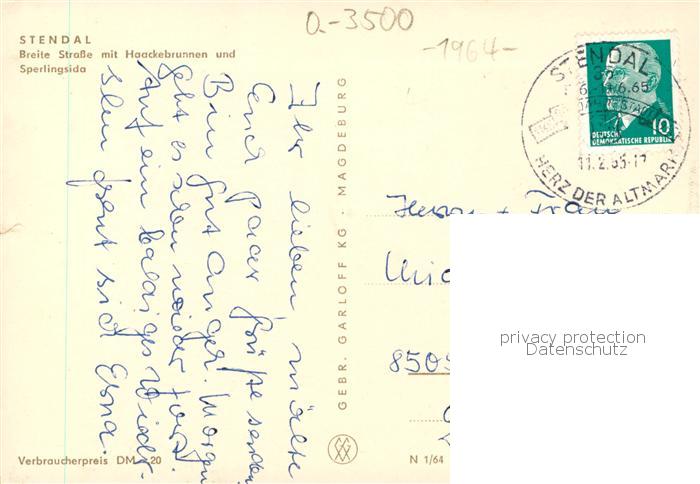 O-3500
-1964-
STENDAL
Breite Straße mit Haackebrunnen und
Sperlingsida
Ihr lieben möchte
Euch paar Grüße senden
Bin gut anget. Morgen
geht es schon wieder fort.
Auf ein baldiges Wieder-
sehn freut sich Erna.
GEBR. GARLOFF KG · MAGDEBURG
Verbraucherpreis DM -,20
N 1/64
STENDAL
11.2.65-17
HERZ DER ALTMARK
DEUTSCHE
DEMOKRATISCHE REPUBLIK
10
Herrn + Frau
850
privacy protection
Datenschutz